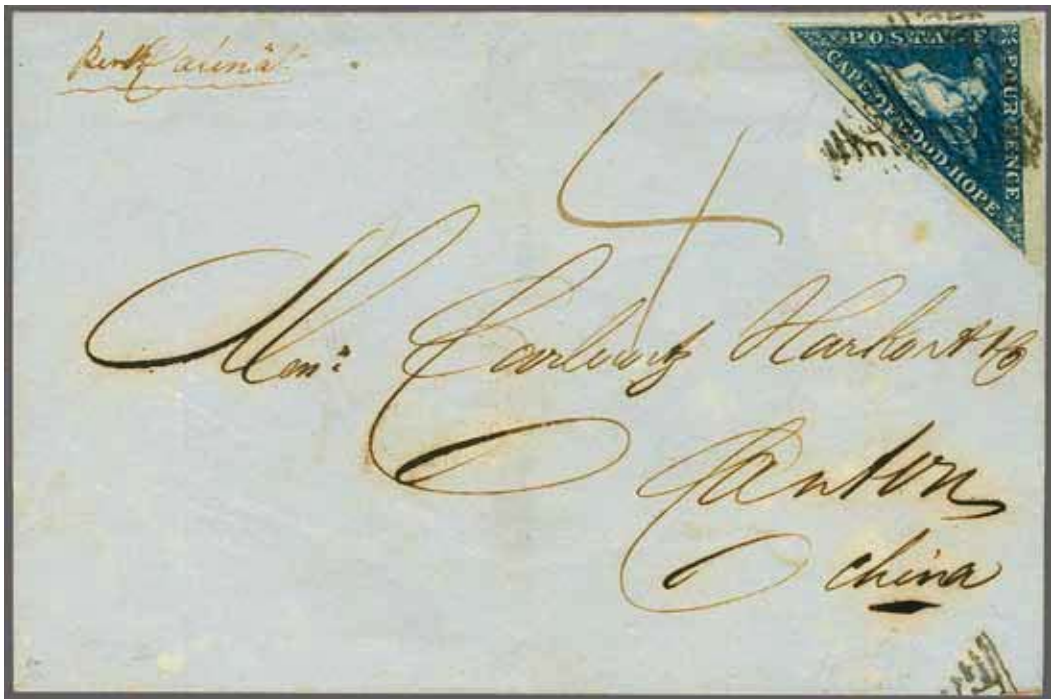 POSTAGE
FOUR PENCE
CAPE OF GOOD HOPE
4
Mess.rs Carlowitz Harkort & Co
Canton
China